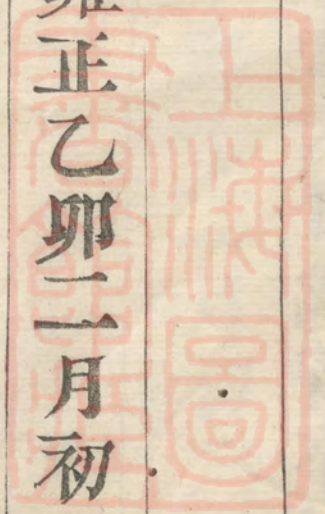 雍正乙卯二月初
上海圖
書館藏